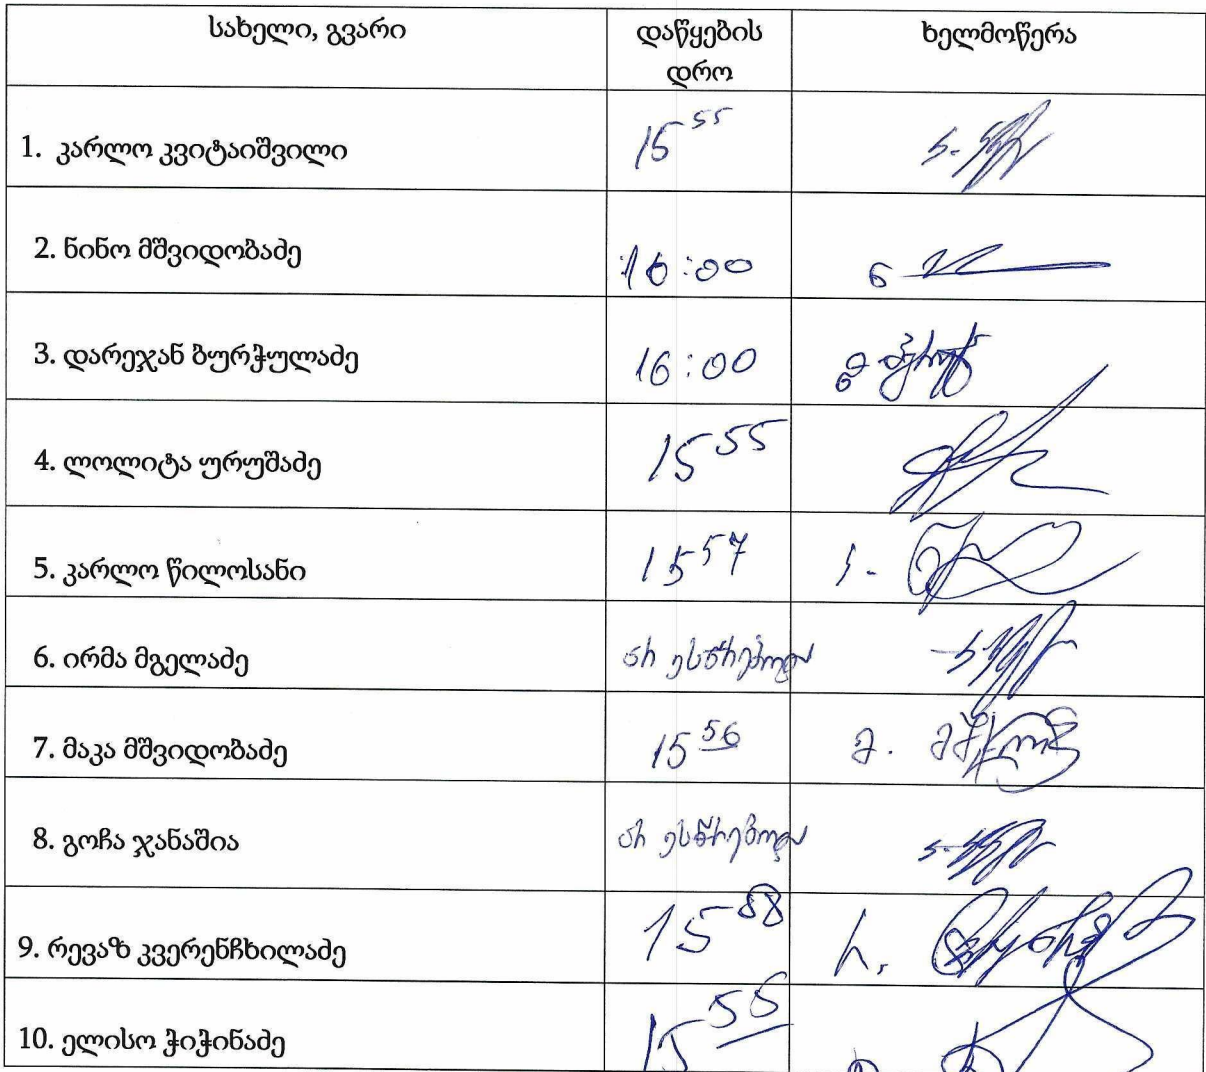 სახელი, გვარი
დაწყების
დრო
ხელმოწერა
1. კარლო კვიტაიშვილი 15 55
2. ნინო მშვიდობაძე 16:00
3. დარეჯან ბურჭულაძე 16:00
4. ლოლიტა ურუშაძე 15 55
5. კარლო წილოსანი 15 57
6. ირმა მგელაძე არ ესწრებოდა
7. მაკა მშვიდობაძე 15 56
8. გოჩა ჯანაშია არ ესწრებოდა
9. რევაზ კვერენჩხილაძე 15
10. ელისო ჭიჭინაძე 15